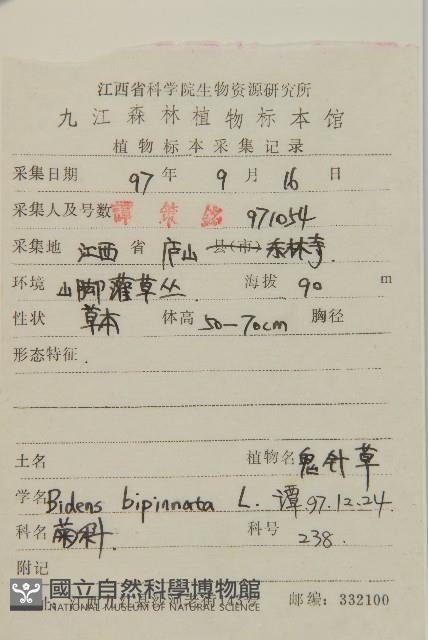 江西省科学院生物资源研究所
九江森林植物标本馆
植物标本采集记录
采集日期 97 年 9 月 16 日
采集人及号数 譚策銘 971054
采集地 江西 省 庐山 县(市) 东林寺
环境 山脚灌草丛 海拔 90 m
性状 草本 体高 50-70cm 胸径
形态特征
土名 植物名 鬼针草
学名 Bidens bipinnata L. 谭.97.12.24.
科名 菊科 科号 238
附记
國立自然科學博物館
NATIONAL MUSEUM OF NATURAL SCIENCE
邮编:332100